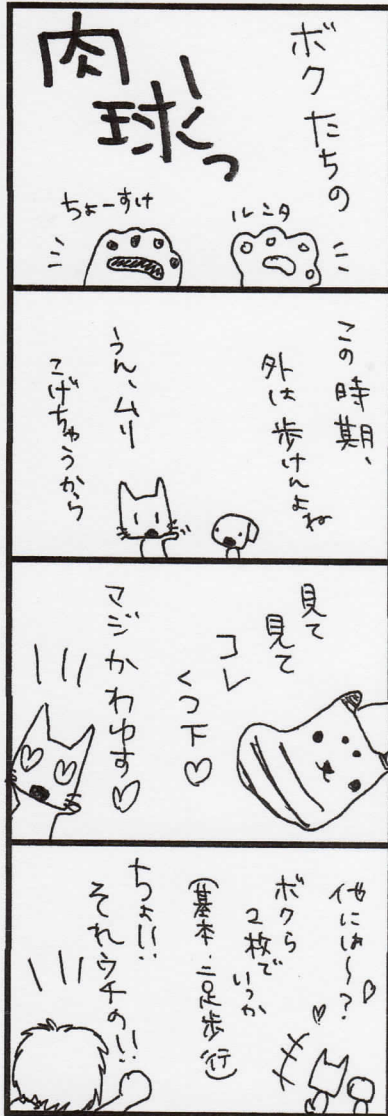 ボクたちの
肉
球っ
ルンタ
ちょーすけ
この時期、
外は歩けんよね
うん、ムリ
こげちゃうから
見て
見て
コレ
くつ下♡
マジかわゆす♡
他には〜?
ボクら
2枚で
いっか
(基本・二足歩行)
ちょい!!
それウチの!!